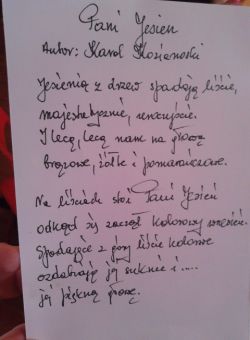 Pani Jesień
Autor: Karol Kozianoski
Jesienią z drzew spadają liście,
majestatycznie, uroczyście.
I lecą, lecą nam na głowę
brązowe, żółte i pomarańczowe.
Na liściach stoi Pani Jesień
odkąd się zaczął kolorowy wrzesień.
Spadające z góry liście kolorowe
ozdabiają jej suknie i.....
jej piękną głowę.